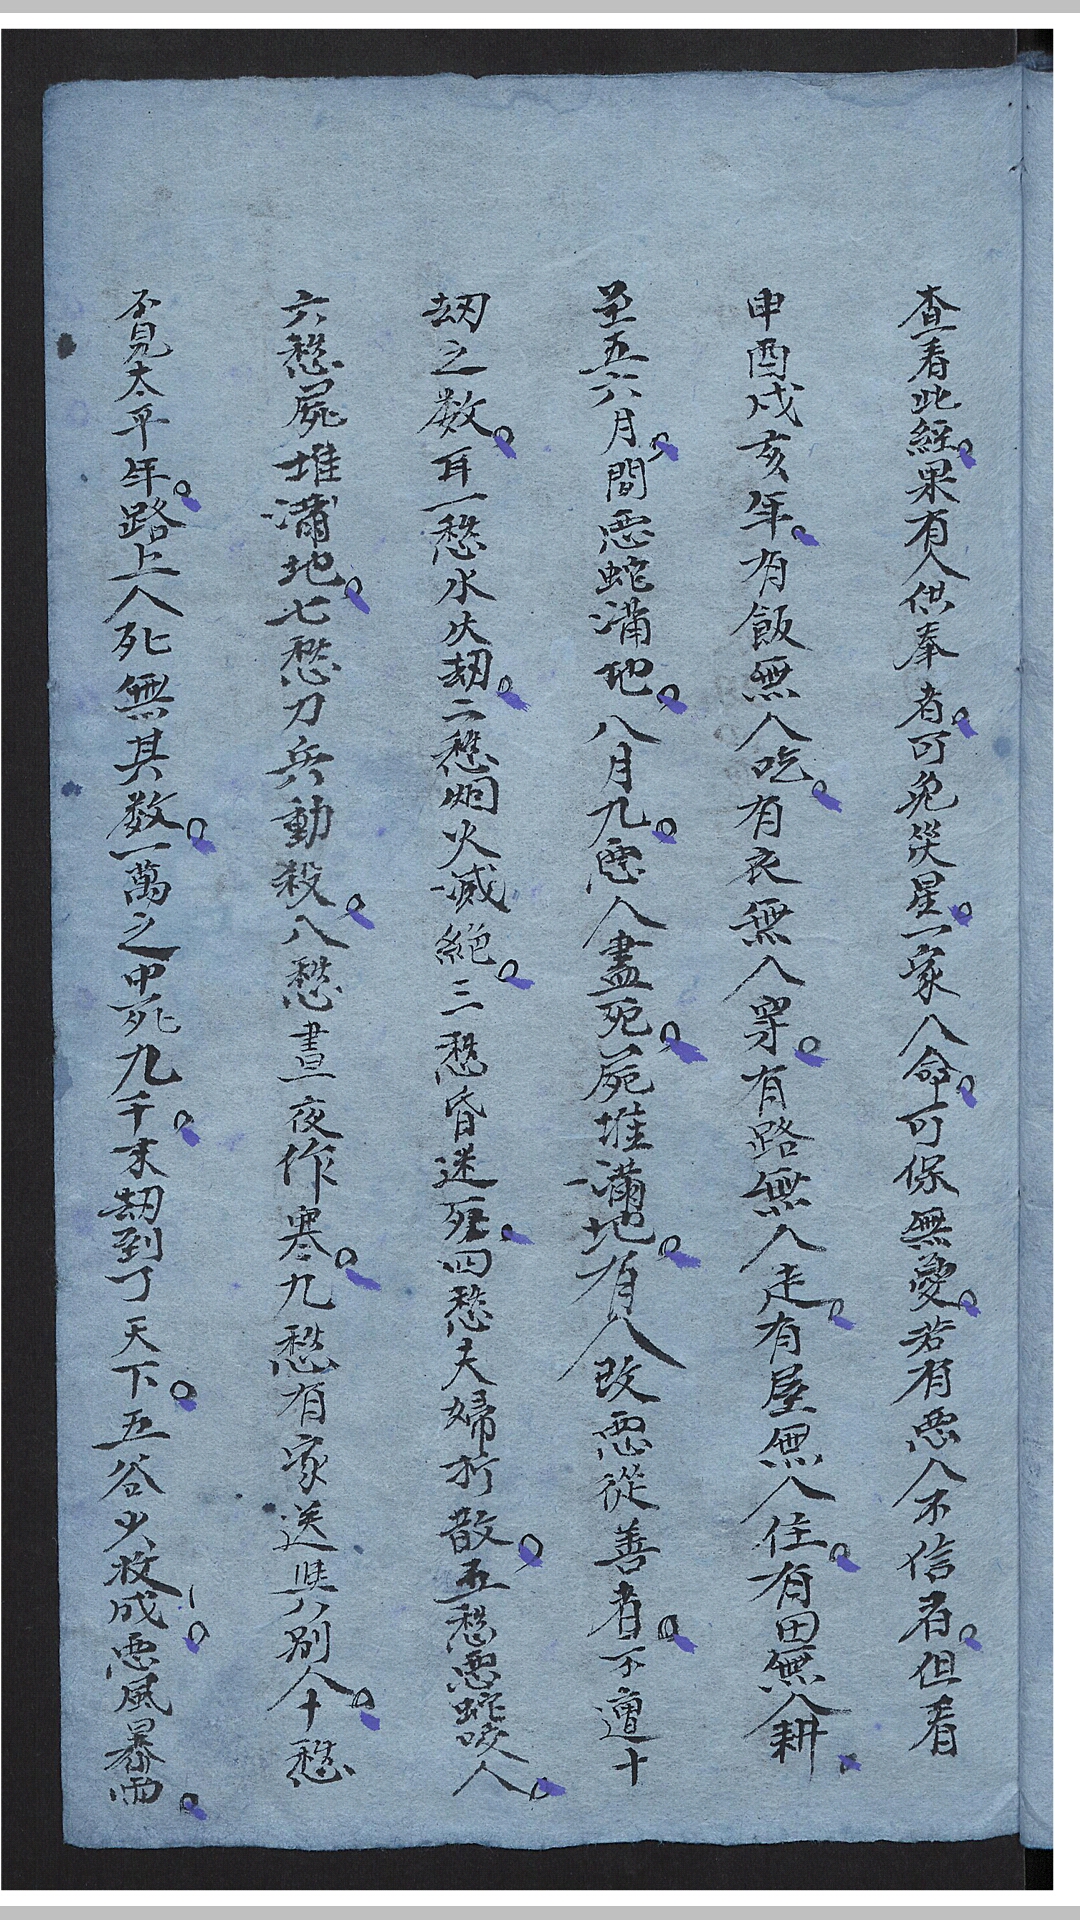 查看此經果有人供奉者可免災星一家人命可保無憂若有惡人不信者但看
申酉戌亥年有飯無人吃有衣無人穿有路無人走有屋無人住有田無人耕
至五六月間惡蛇滿地八月九惡人盡死屍堆滿地有人改惡從善者不遭十
劫之数耳一愁水火劫二愁烟火滅絕三愁昏迷死四愁夫婦折散五愁惡蛇咬人
六愁屍堆滿地七愁刀兵動殺八愁晝夜作寒九愁有家送與別人十愁
不見太平年路上人死無其数一萬之中死九千末劫到了天下五谷少收成惡風暴雨